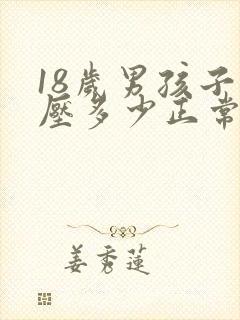 18歲男孩子
壓多少正常
姜秀蓮